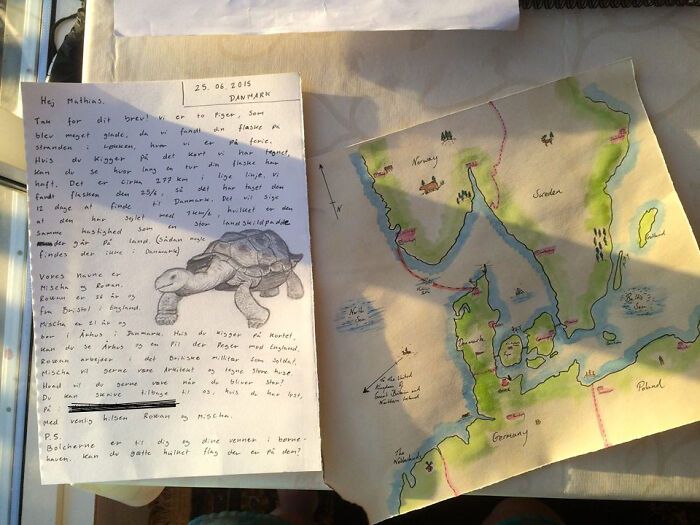 25.06.2015
DANMARK
Hej Mathias.
Tak for dit brev! Vi er to piger, som
blev meget glade, da vi fandt din flaske på
stranden i Løkken, hvor vi er på ferie.
Hvis du kigger på det kort vi har tegnet,
kan du se hvor lang en tur din flaske har
haft. Det er cirka 277 km i lige linje. Vi
fandt flasken den 25/6, så det har taget den
12 dage at finde til Danmark. Det vil sige
at den har sejlet med 1 km/t, hvilket er den
samme hastighed som en stor landskildpadde
der går på land. (Sådan nogle
findes der ikke i Danmark)
Vores navne er
Mischa og Rowan.
Rowan er 26 år og
fra Bristol i England.
Mischa er 21 år og
bor i Århus i Danmark. Hvis du kigger på kortet,
kan du se Århus og en pil der peger mod England.
Rowan arbejder i det Britiske militær som soldat.
Mischa vil gerne være Arkitekt og tegne store huse.
Hvad vil du gerne være når du bliver stor?
Du kan skrive tilbage til os, hvis du har lyst.
På :
Med venlig hilsen Rowan og Mischa.
P.S.
Bolcherne er til dig og dine venner i børne-
haven. Kan du gætte hvilket flag der er på dem?
N
Norway
Sweden
Gotland
North
Sea
Baltic
Sea
Denmark
To the United
Kingdom of
Great Britain and
Northern Ireland
Poland
Germany
The
Netherlands